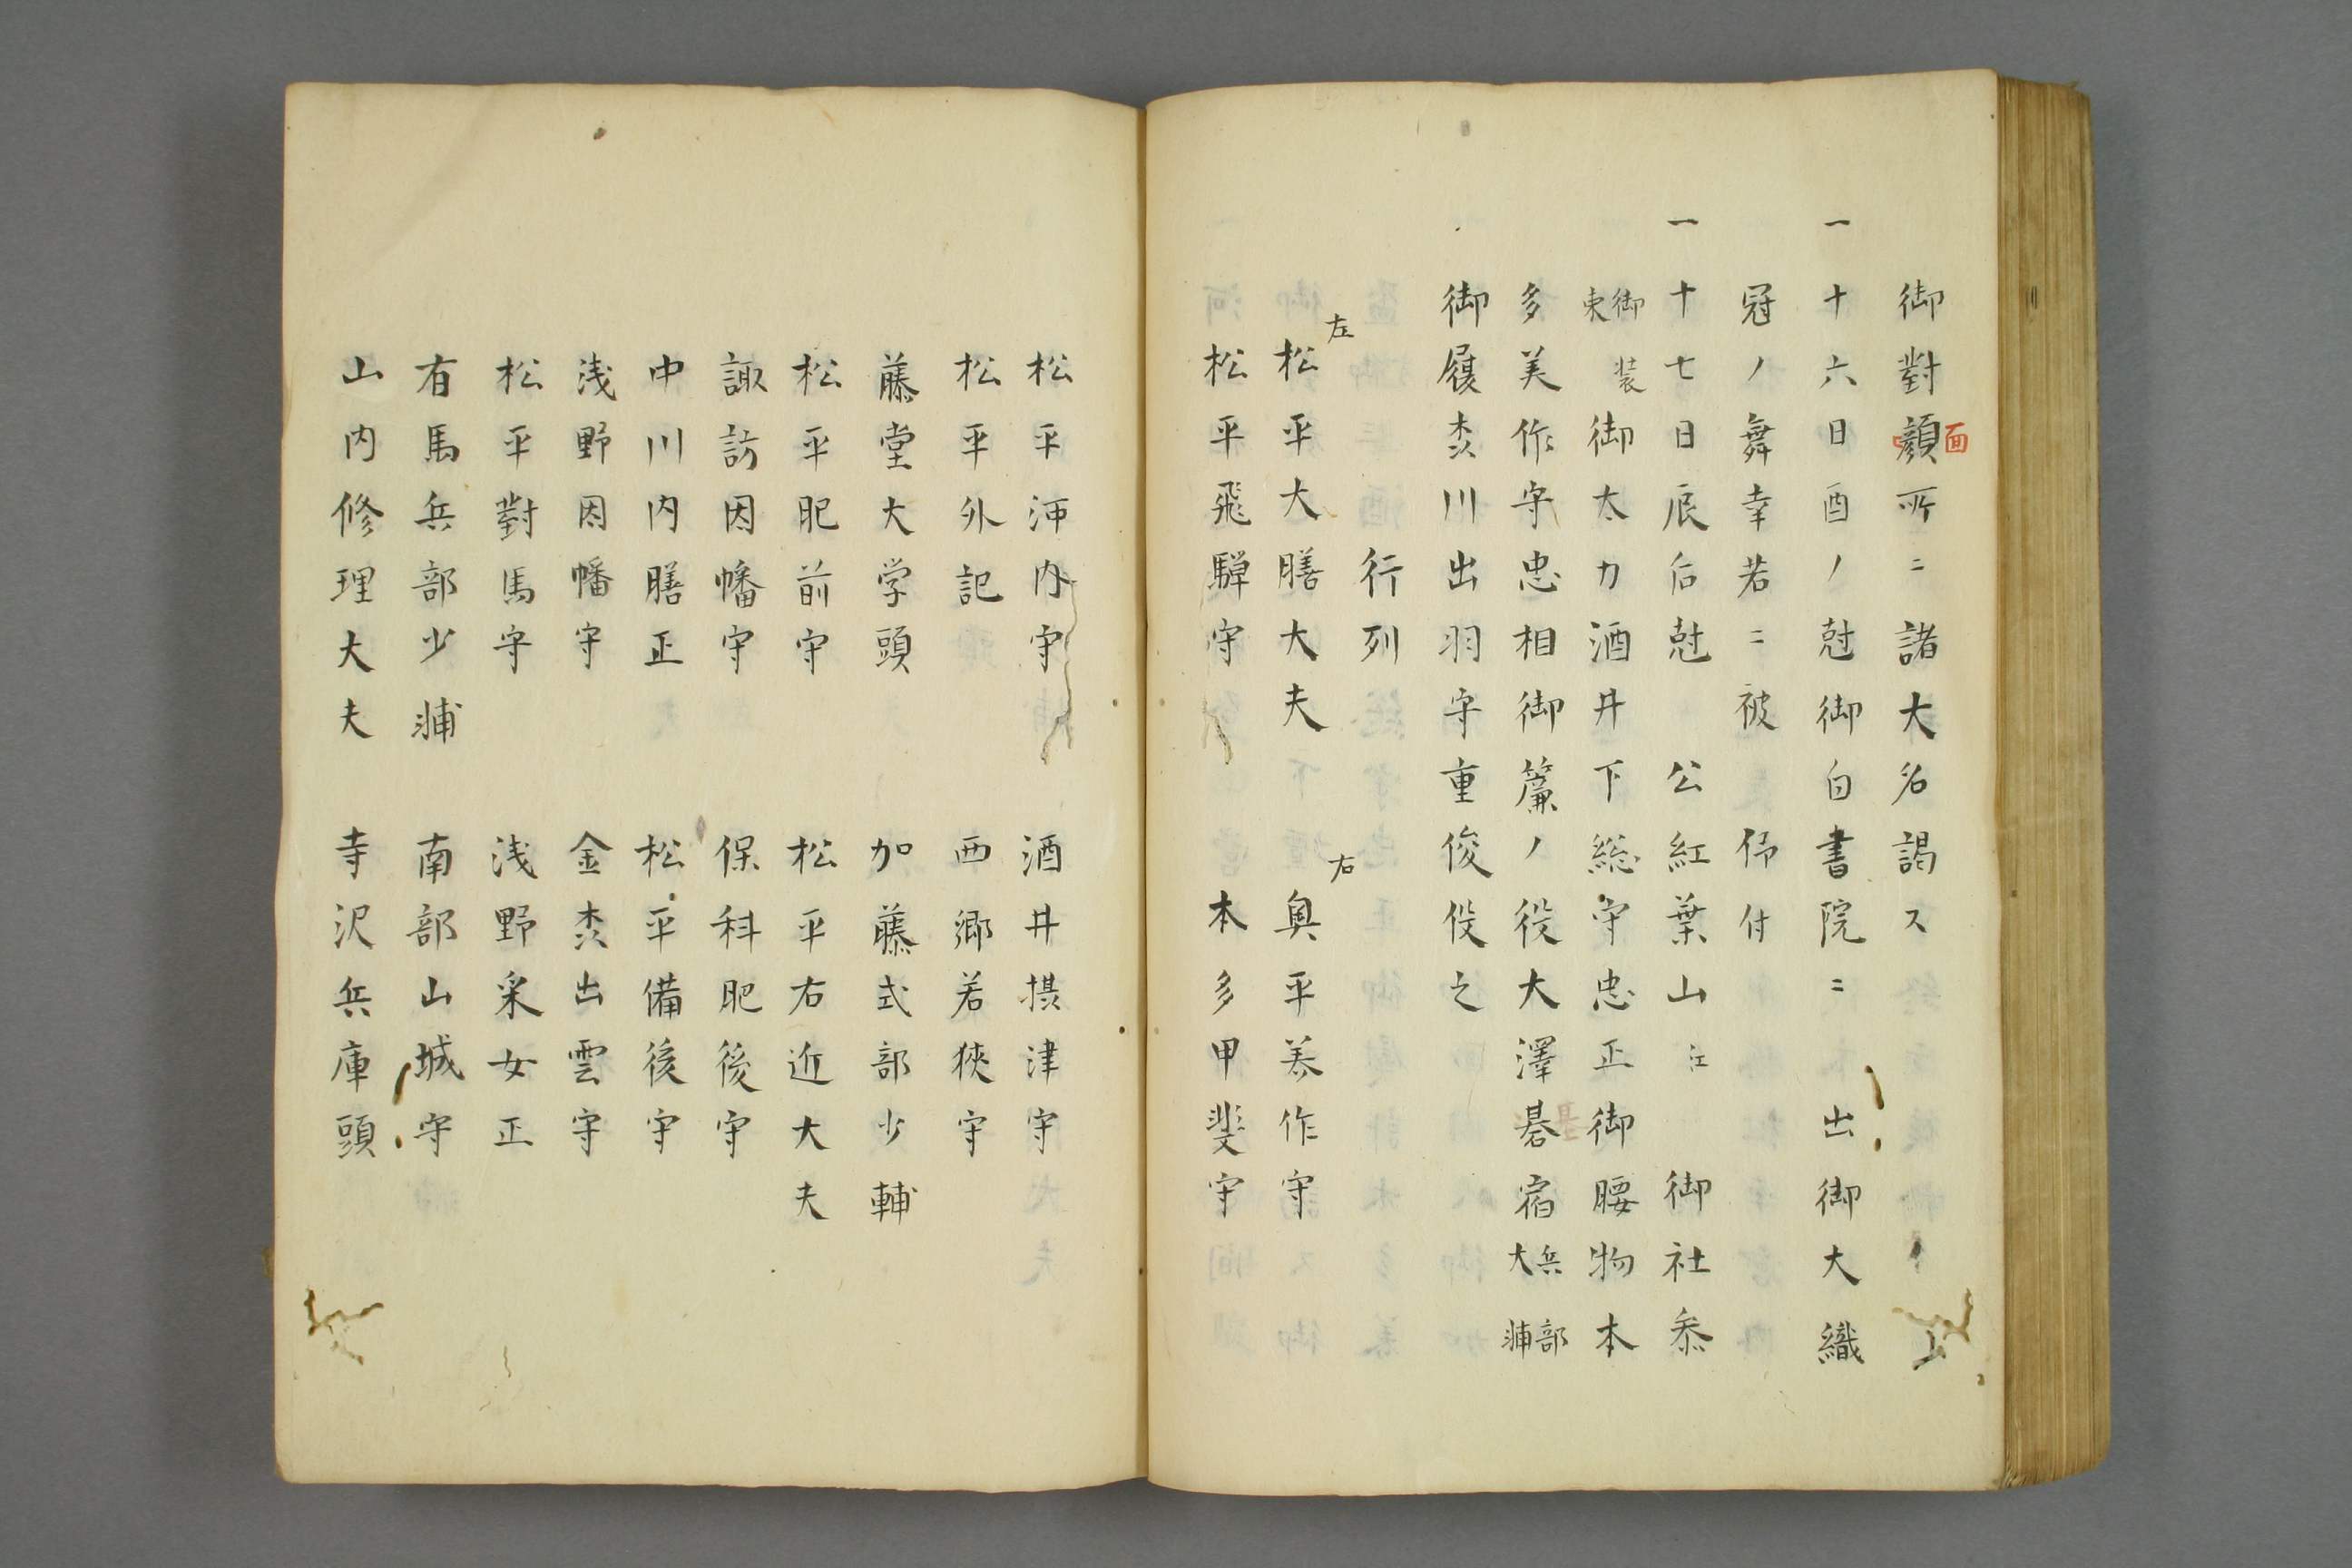 御對顔所ニ諸大名謁ス
面
一十六日酉ノ尅御白書院ニ 出御大織
冠ノ舞幸若ニ被 仰付
一十七日辰后尅 公紅葉山江 御社参
御装束御太刀酒井下総守忠正御腰物本
多美作守忠相御簾ノ役大澤碁宿兵部大輔
御履柰川出羽守重俊役之
行列
左 右
松平大膳大夫 奥平美作守
松平飛騨守 本多甲斐守
松平河内守 酒井摂津守
松平外記 西郷若狹守
藤堂大学頭 加藤式部少輔
松平肥前守 松平右近大夫
諏訪因幡守 保科肥後守
中川内膳正 松平備後守
浅野因幡守 金柰出雲守
松平對馬守 浅野采女正
有馬兵部少輔 南部山城守
山内修理大夫 寺沢兵庫頭